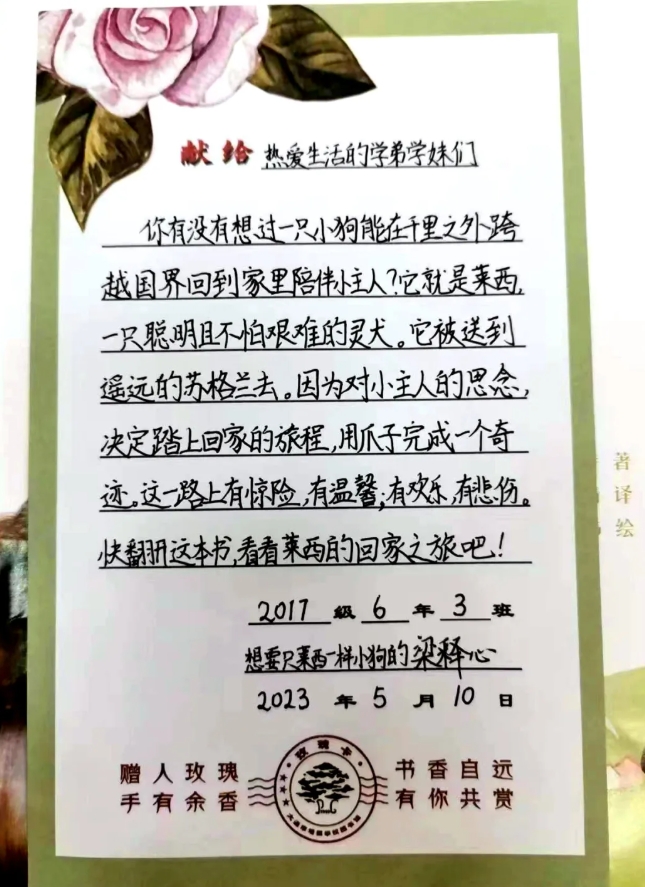 献给 热爱生活的学弟学妹们
你有没有想过一只小狗能在千里之外跨
越国界回到家里陪伴小主人?它就是莱西,
一只聪明且不怕艰难的灵犬。它被送到
遥远的苏格兰去。因为对小主人的思念,
决定踏上回家的旅程,用爪子完成一个奇
迹。这一路上有惊险,有温馨,有欢乐,有悲伤。
快翻开这本书,看看莱西的回家之旅吧!
2017 级 6 年 3 班
想要只莱西一样小狗的梁释心
2023 年 5 月 10 日
赠人玫瑰
手有余香
玫瑰卡
书香自远
有你共赏
著
译
绘